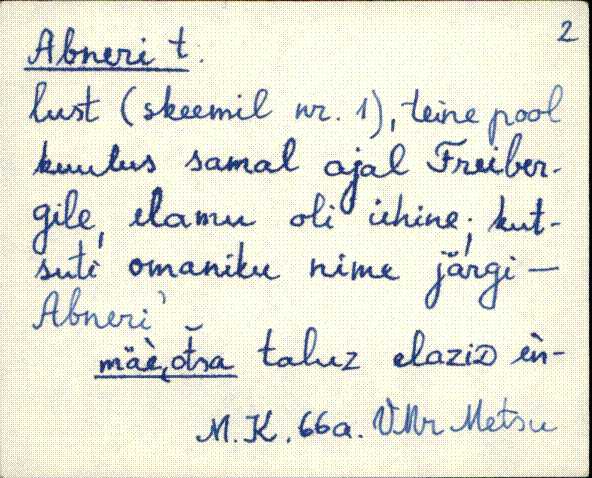 2
Abneri t.
lust (skeemil nr. 1), teine pool
kuulus samal ajal Freiber-
gile, elamu oli ühine; kut-
suti omaniku nime järgi —
Abneri'
mäè,otsa taluz elaziD èn-
M.K. 66a. VMr Metsu